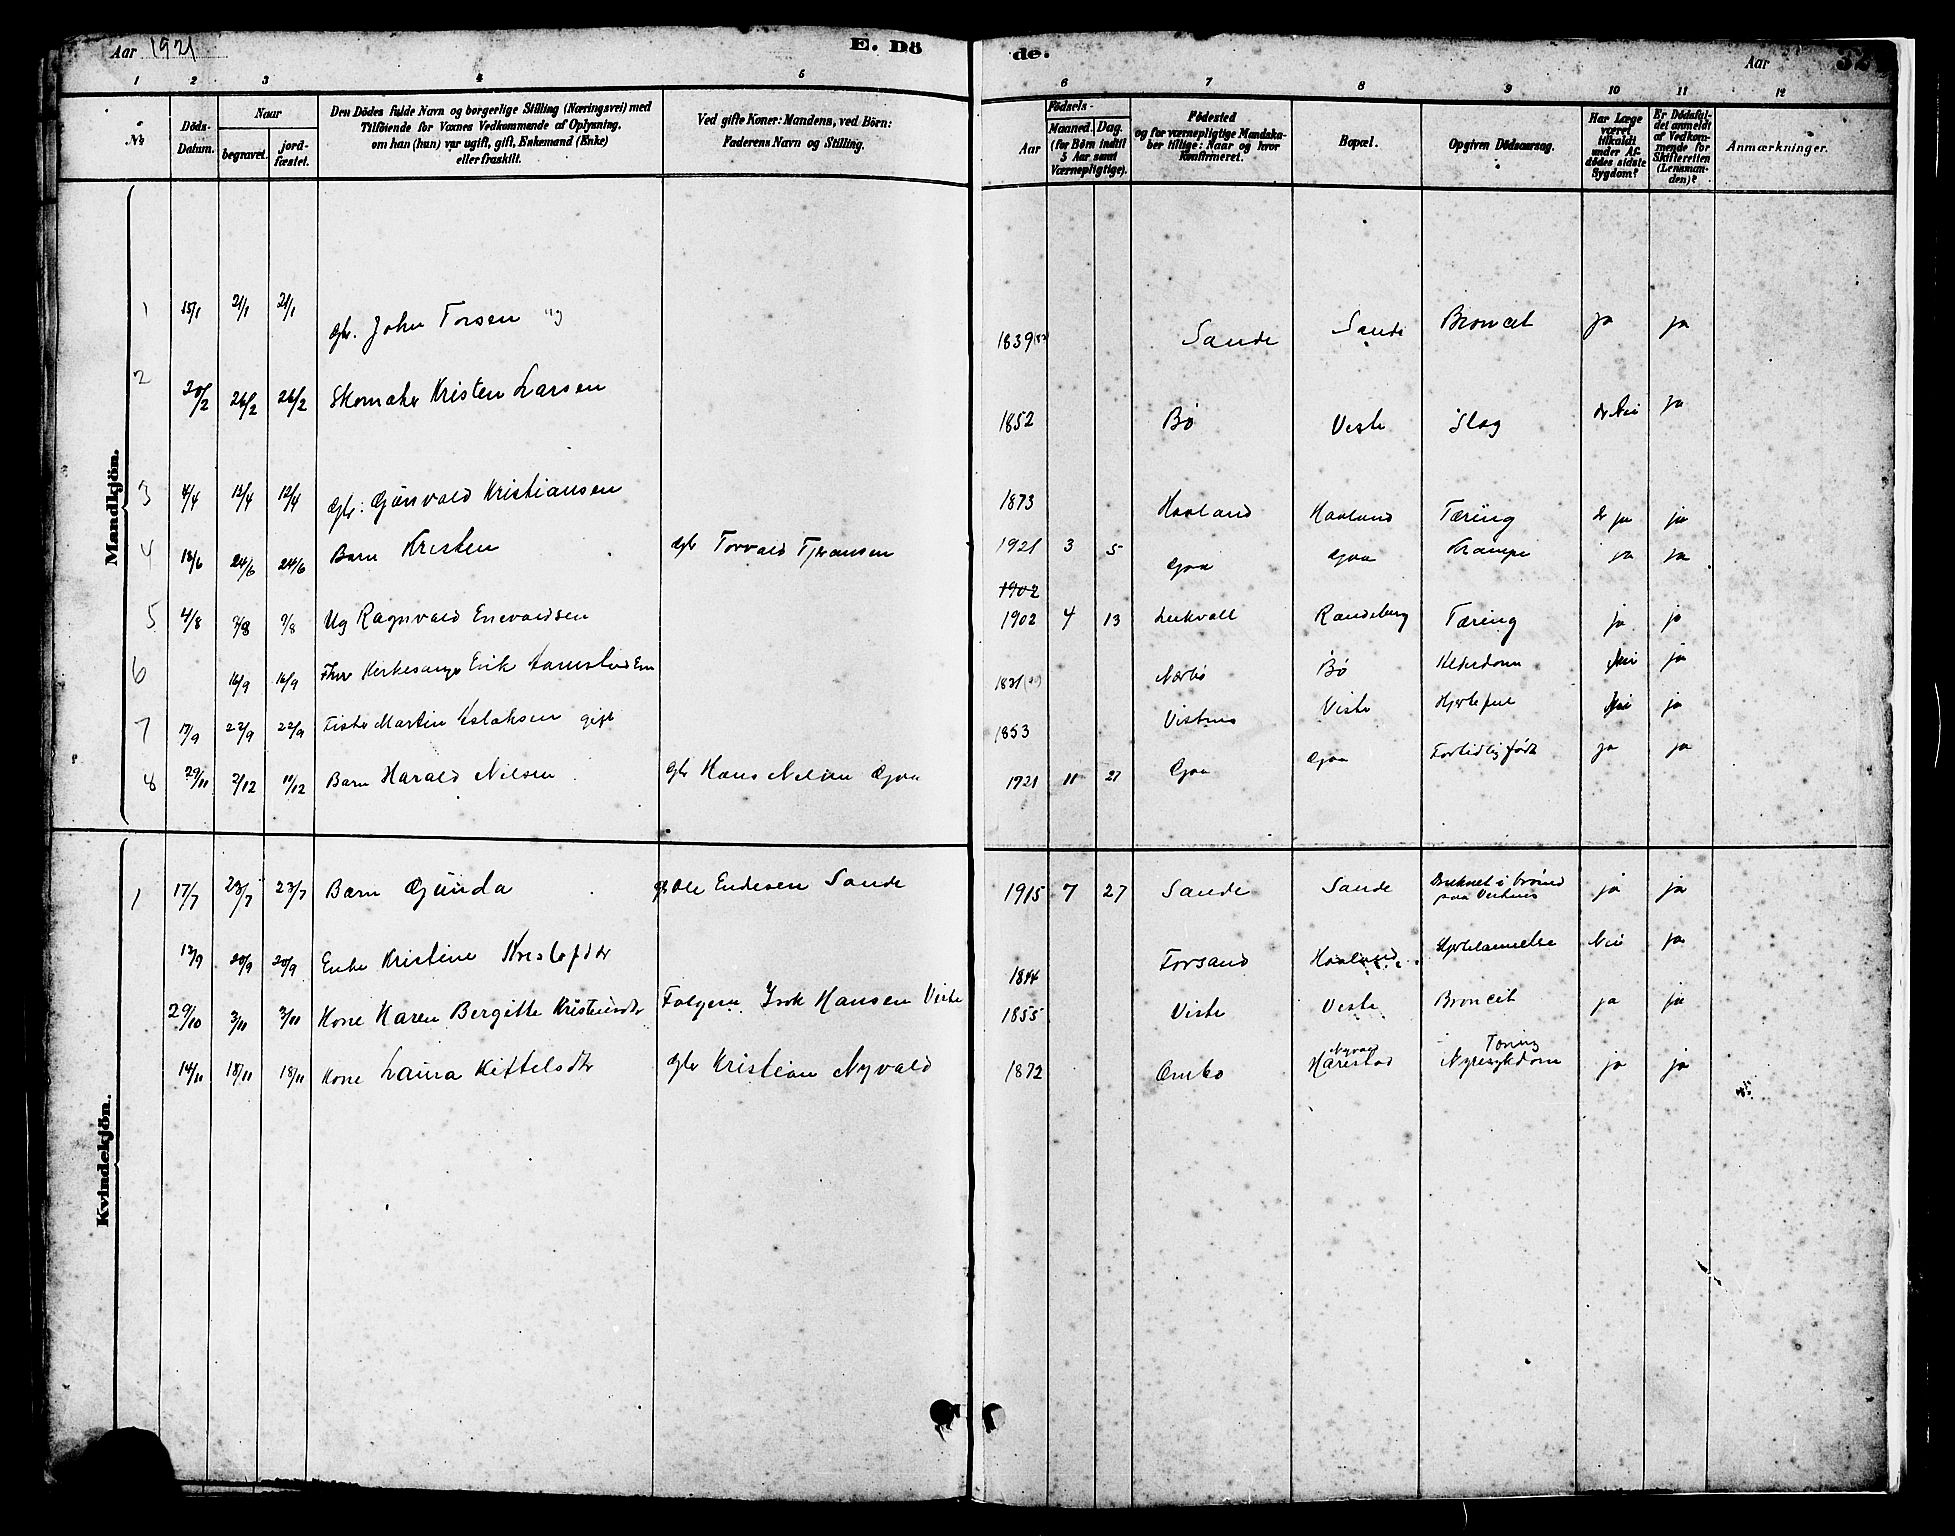 Aar 1921
E. Dö
de.
Aar
1 2 3 4 5 6 7 8 9 10 11 12
No
Döds-Datum.
Naar
begravet.
jord-fæstet.
Den Dödes fulde Navn og borgerlige Stilling (Næringsvei) med
Tilföiende for Voxnes Vedkommende af Oplysning,
om han (hun) var ugift, gift, Enkemand (Enke)
eller fraskilt.
Ved gifte Koner: Mandens, ved Börn:
Faderens Navn og Stilling.
Födsels-
Aar
Maaned. Dag.
(for Börn indtil
5 Aar samt
Værnepligtige).
Födested
og for værnepligtige Mandska-
ber tillige: Naar og hvor
konfirmeret.
Bopæl.
Opgiven Dödsaarsag.
Har Læge
været
tilkaldt
under Af-
dödes sidste
Sygdom?
Er Dödsfal-
det anmeldt
af Vedkom-
mende for
Skifteretten
(Lensman-
den)?
Anmærkninger.
Mandkjön.
1 15/1 21/1 21/1 Gbr. John Torsen ug 1839 Sande Sande Broncit ja ja
2 20/2 26/2 26/2 Skomaker Kristen Larsen 1852 Bø Viste Slag Nei ja
3 4/4 12/4 12/4 Gbr. Gunvald Kristiansen 1873 Haaland Haaland Tæring ja ja
4 18/6 24/6 24/6 Barn Kristen Gbr Torvald Tjeransen 1921 3 5 Goa Goa Krampe ja ja
1902
5 4/8 9/8 9/8 Ug Ragnvald Enevaldsen 1902 4 13 Randeberg Tæring ja ja
6 16/9 16/9 Kirkesanger Erik 1831 Nærbø Bø Alderdom Nei ja
7 17/9 22/9 22/9 Fisker Martin Aslaksen gift 1853 Vistnes Viste Hjertefeil Nei ja
8 29/11 2/12 11/12 Barn Harald Nilsen Gbr Hans Nilsen Goa 1921 11 27 Goa Goa Fortidlig født ja ja
Kvindekjön.
1 17/7 23/7 23/7 Barn Gunda Gbr Ole Endresen Sande 1915 7 27 Sande Sande Druknet i brønd
paa Vistnes ja ja
12/9 20/9 20/9 Enke Kristine 1844 Forsand Haaland Hjertelammelse Nei ja
29/10 3/11 3/11 Kone Karen Bergitte Hansen Viste 1855 Viste Viste Broncit ja ja
14/11 18/11 18/11 Kone Laura Kittelsdtr Gbr Kristian Nyvald 1872 Ombo Nyvald
Harestad Tæring
Nyresykdom ja ja